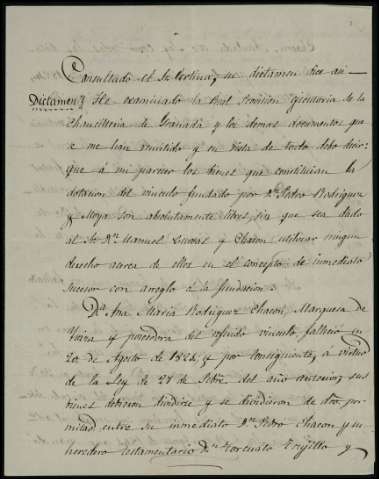 Consultado el Sr. Cortina, su dictamen dice asi =
Dictamen) He examinado la Real Provision ejecutoria de la
Chancilleria de Granada y los demas documentos que
se me han remitido y en vista de todo debo decir:
que á mi parecer los bienes que constituian la
dotacion del vinculo fundado por Dn. Pedro Rodriguez
y Moya son absolutamente libres, sin que sea dado
al Sr. Dn. Manuel y Chacon utilizar ningun
derecho acerca de ellos en el concepto de inmediato
sucesor con arreglo á la fundacion =
Da. Ana Maria Rodriguez Chacon, Marquesa de
y poseedora del referido vinculo, falleció en
20 de Agosto de y por consiguiente, á virtud
de la Ley de 27 de Setre. del año anterior, sus
bienes debieron dividirse y se dividieron de
entre su inmediato Dn. Pedro Chacon y su
heredero testamentario Dn. Fortunato Trujillo y